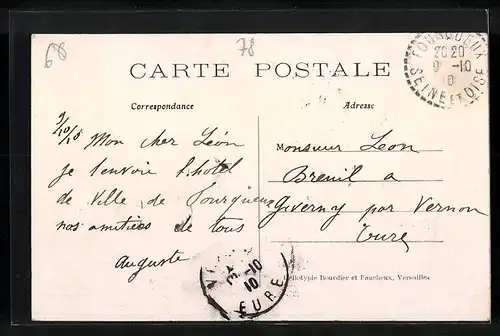 68
78
CARTE POSTALE
Correspondance
Adresse
FOURQUEUX
20 20
9 -10
SEINE ET OISE
9/10/10
Mon cher Léon
je t'envoie l'hotel
de Ville de Fourqueux
nos amitiées de tous
Auguste
Monsieur Leon
Breuil a
Giverny par Vernon
Eure
10 -10
EURE
Héliotypie Bourdier et Faucheux, Versailles.